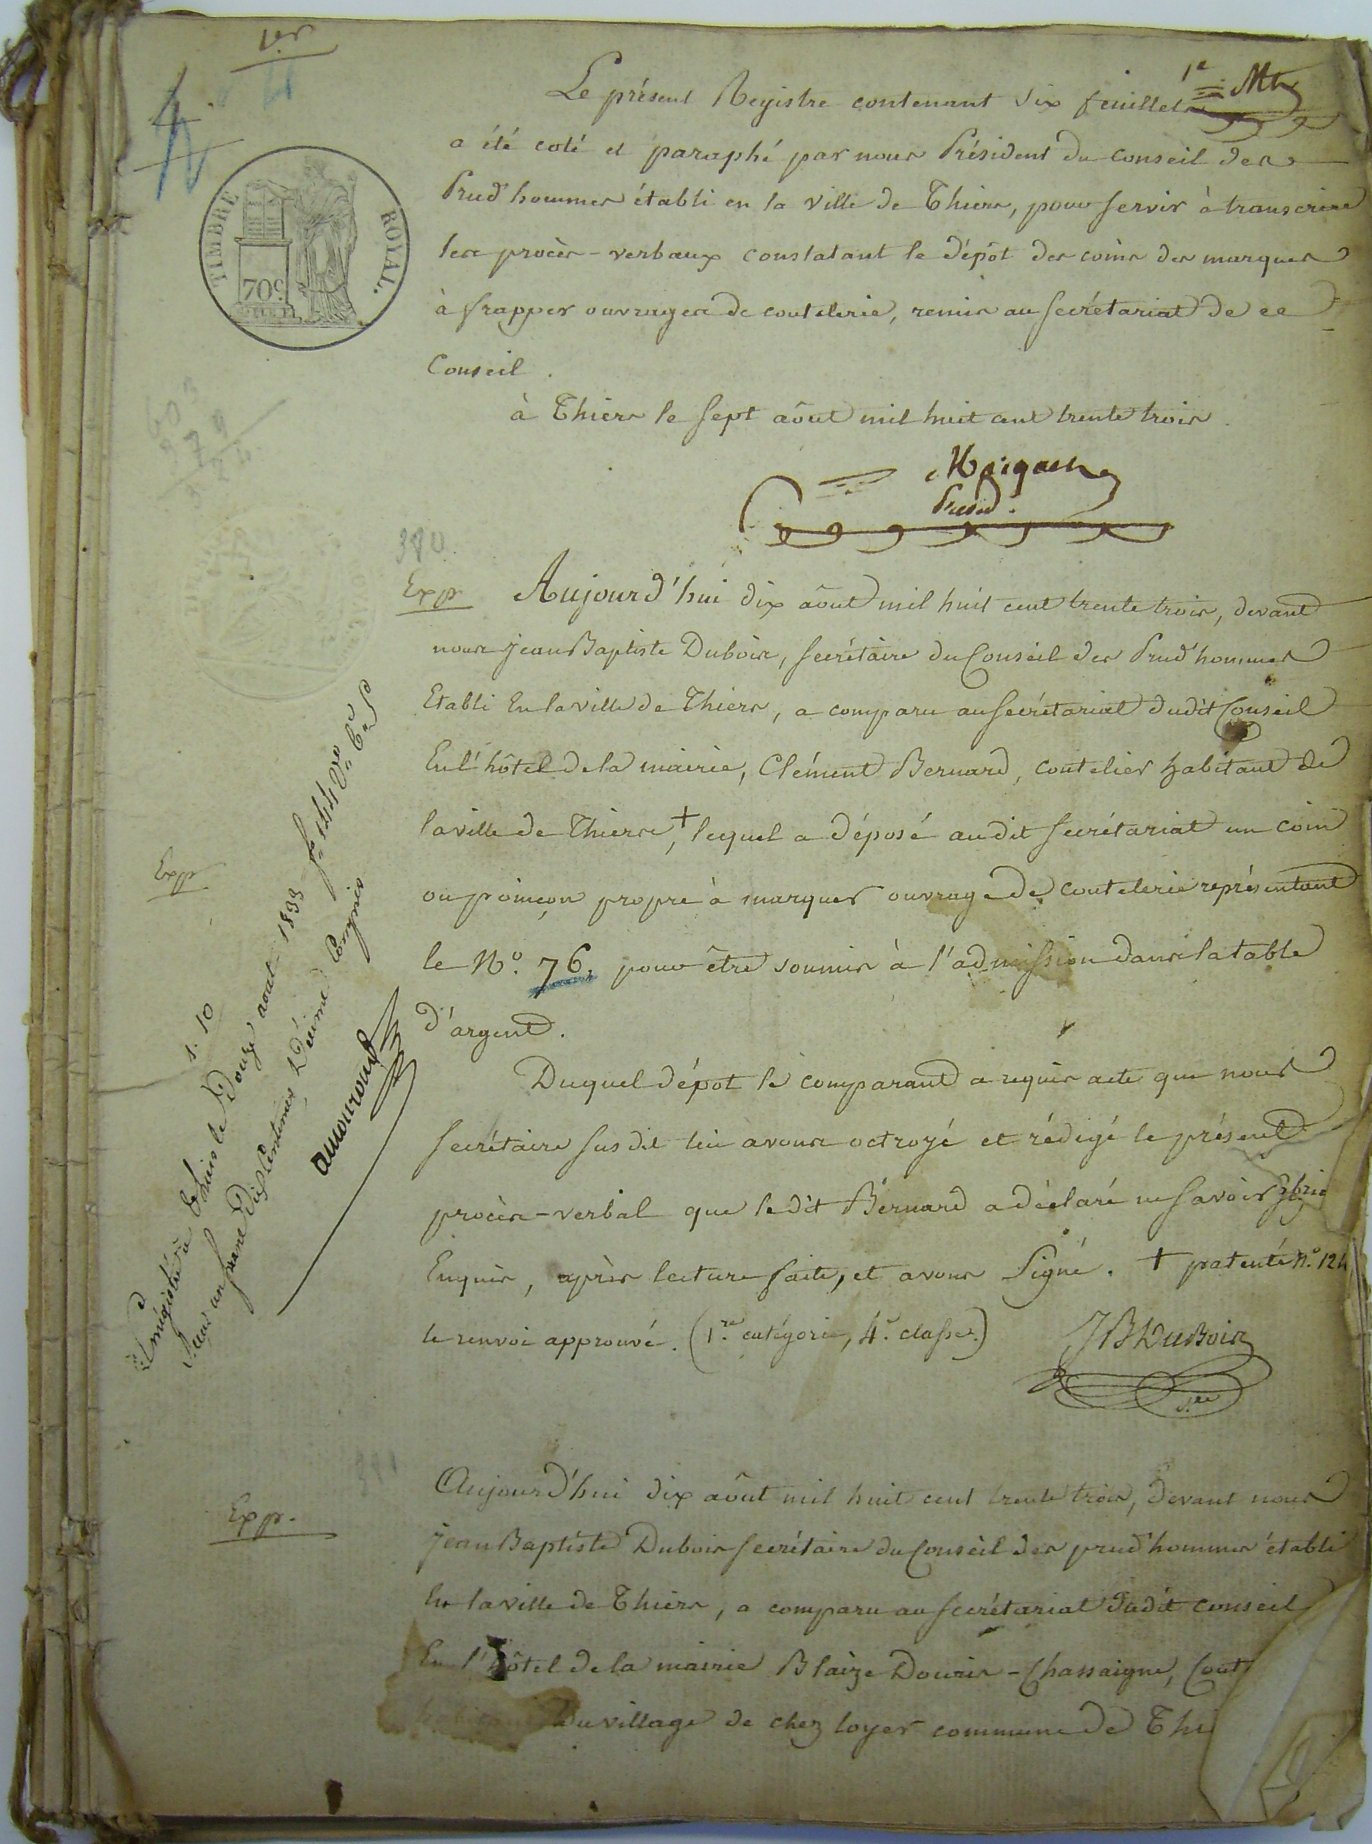 1er
Le présent Registre contenant six feuillets
a été coté et paraphé par nous Président du conseil des
Prud'hommes établi en la ville de Thiers, pour servir à transcrire
les procès-verbaux constatant le dépôt des coins des marques
à frapper ouvrages de coutelerie, remis au secrétariat de ce
Conseil.
à Thiers le sept août mil huit cent trente trois.
Présid.
TIMBRE ROYAL.
70c
380
Exp. Aujourd'hui dix août mil huit cent trente trois, devant
nous jean Baptiste Dubois, secrétaire du Conseil des Prud'hommes
Etabli En la ville de Thiers, a comparu au secrétariat dudit Conseil
En l'hôtel de la mairie, Clément Bernard, coutelier habitant de
la ville de Thiers +, lequel a déposé audit secrétariat un coin
ou poinçon propre à marquer ouvrage de coutelerie représentant
le No. 76, pour être soumis à l'admission dans la table
d'argent.
Duquel dépôt le comparant a requis acte que nous
secrétaire susdit lui avons octroyé et rédigé le présent
procès-verbal que ledit Bernard a déclaré ne savoir
Enquis, après lecture faite, et avons Signé. + patenté No. 124
le renvoi approuvé. (1re catégorie, 4e classe.) JB Dubois
sre
Exp.
1. 10
Enregistré à Thiers le Douze août 1833 fo 144 Vo
Reçu un franc Dix Centimes Décime Compris
381
Exp. Aujourd'hui dix août mil huit cent trente trois, Devant nous
jean Baptiste Dubois secrétaire du Conseil des prud'hommes établi
En la ville de Thiers, a comparu au secrétariat dudit conseil
En l'hôtel de la mairie Blaize Douris-Chassaigne, Cout
du village de chez loyer commune de Thi